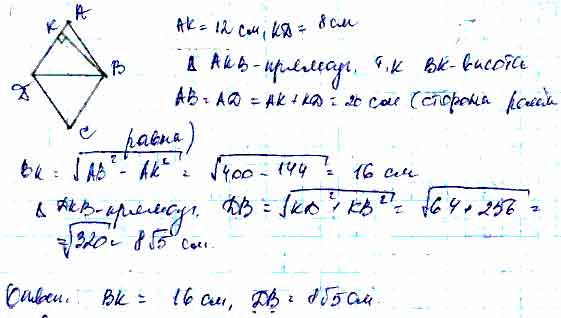 K A
D B
C
AK = 12 см, KD = 8 см
Δ AKB - прямоуг. т.к BK - высота
AB = AD = AK + KD = 20 см (стороны
равна)
BK = √AB² - AK² = √400 - 144 = 16 см.
Δ DKB - прямоуг. DB = √KD² + KB² = √64 + 256 =
= √320 = 8√5 см.
Ответ: BK = 16 см, DB = 8√5 см.